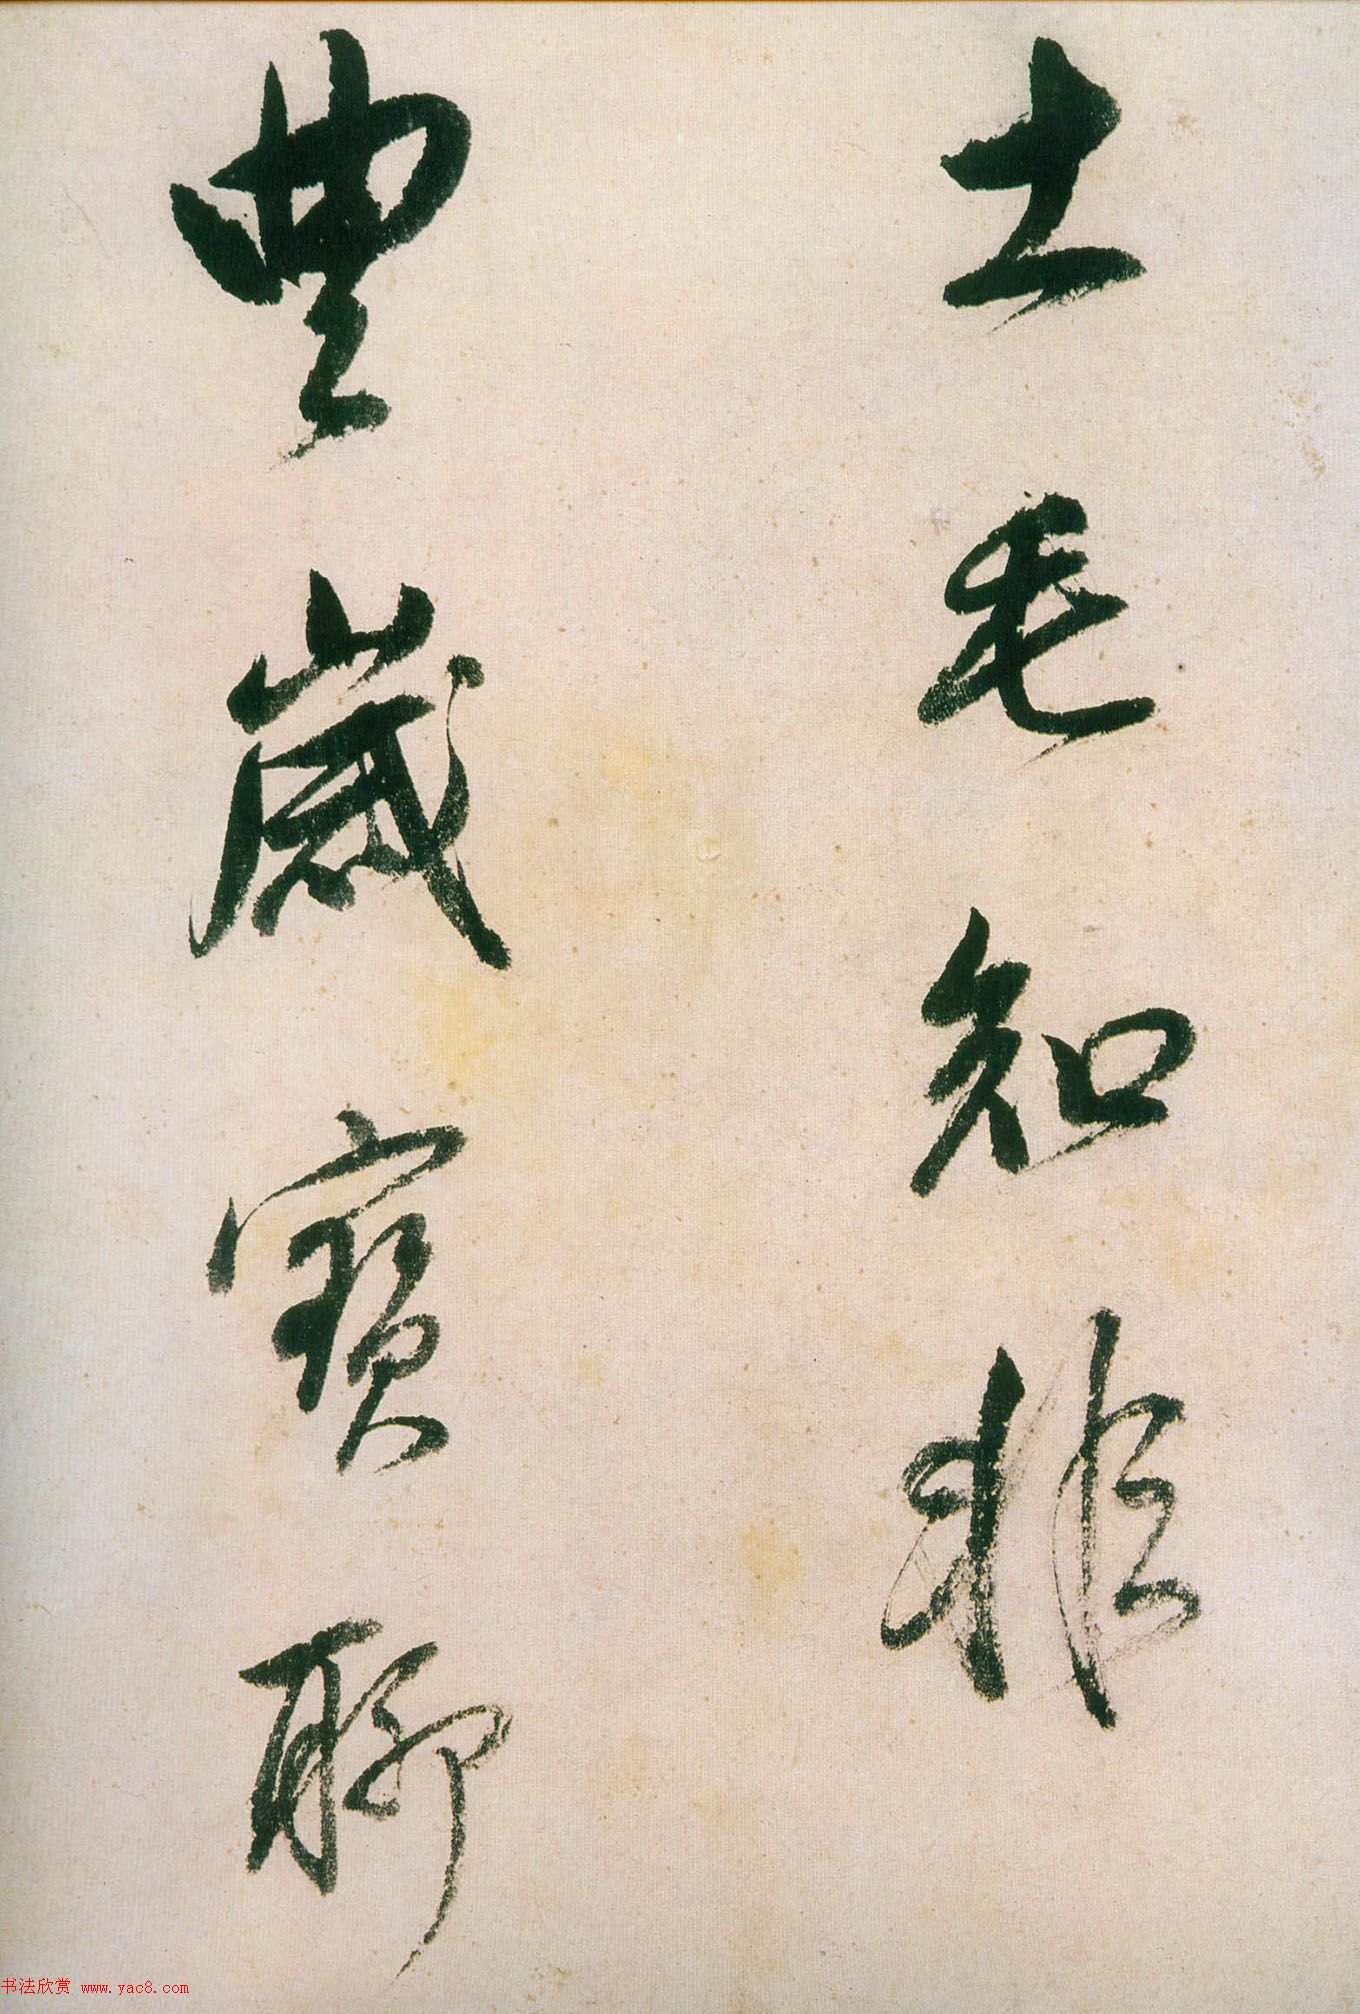 土毛知非
豊歲寶聊
书法欣赏 www.yac8.com